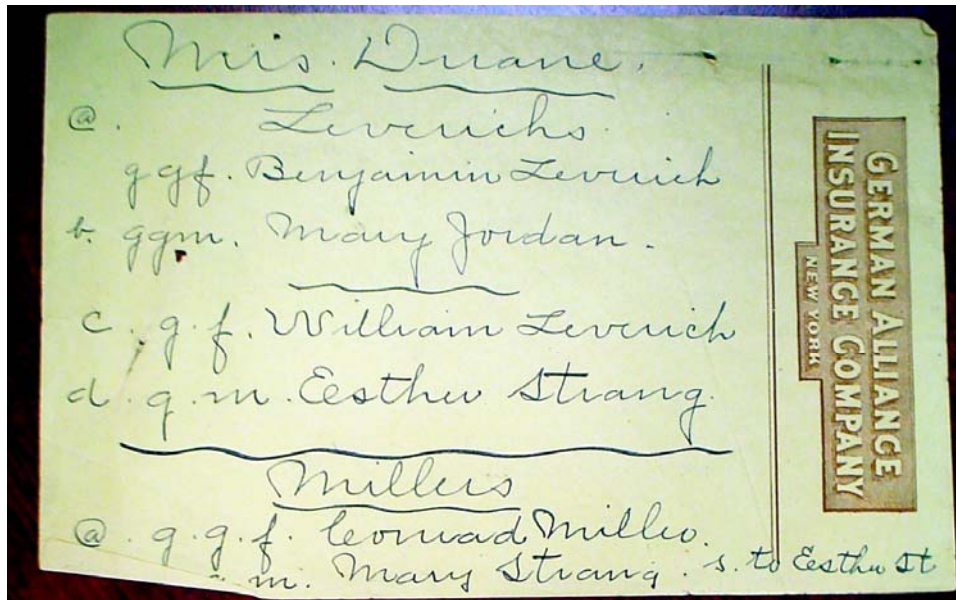 Mrs. Duane.
@. Leverichs.
g gf. Benjamin Leverich
b. ggm. Mary Jordan.
c. g. f. William Leverich
d. g. m. Eesther Strang.
Millers
@. g. g. f. Conrad Miller.
m. Mary Strang. s. to Eesther St
GERMAN ALLIANCE
INSURANCE COMPANY
NEW YORK